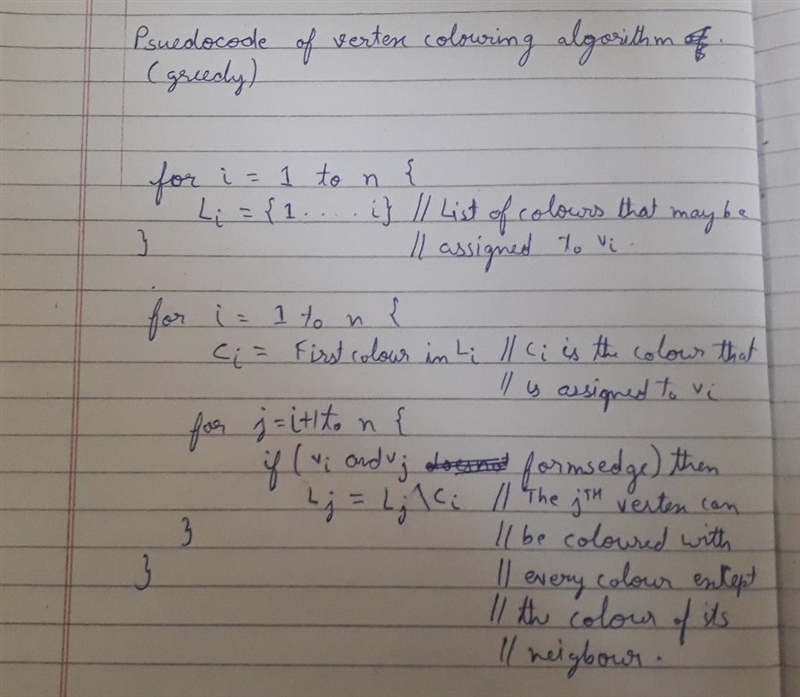 Psuedocode of vertex colouring algorithm
(greedy)
for i = 1 to n {
Li = {1 . . . . i} // List of colours that may be
} // assigned to vi.
for i = 1 to n {
Ci = First colour in Li // Ci is the colour that
// is assigned to vi
for j = i+1 to n {
if (vi and vj formsedge) then
Lj = Lj \ Ci // The jTH vertex can
} // be coloured with
} // every colour except
// the colour of its
// neigbour.